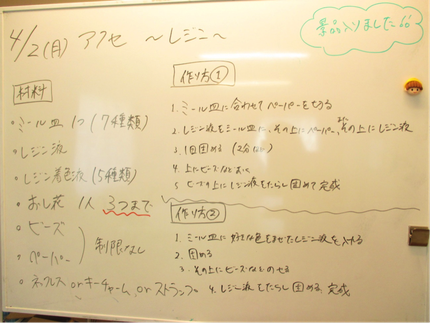 4/2(月) アクセ 〜レジン〜
景品入りました
材料
・ミール皿 1つ (7種類)
・レジン液
・レジン着色液 (5種類)
・おし花 1人 3つまで
・ビーズ
・ペーパー
制限なし
・ネックレス or キーチャーム or ストラップ
作り方①
1. ミール皿に合わせてペーパーを切る
2. レジン液をミール皿に、その上にペーパー、その上にレジン液
3. 1回固める (2分
4. 上にビーズなどおく
5. ビーズの上にレジン液をたらし固めて完成
作り方②
1. ミール皿に好きな色をまぜたレジン液を入れる
2. 固める
3. その上にビーズなどのせる
4. レジン液をたらし固める、完成